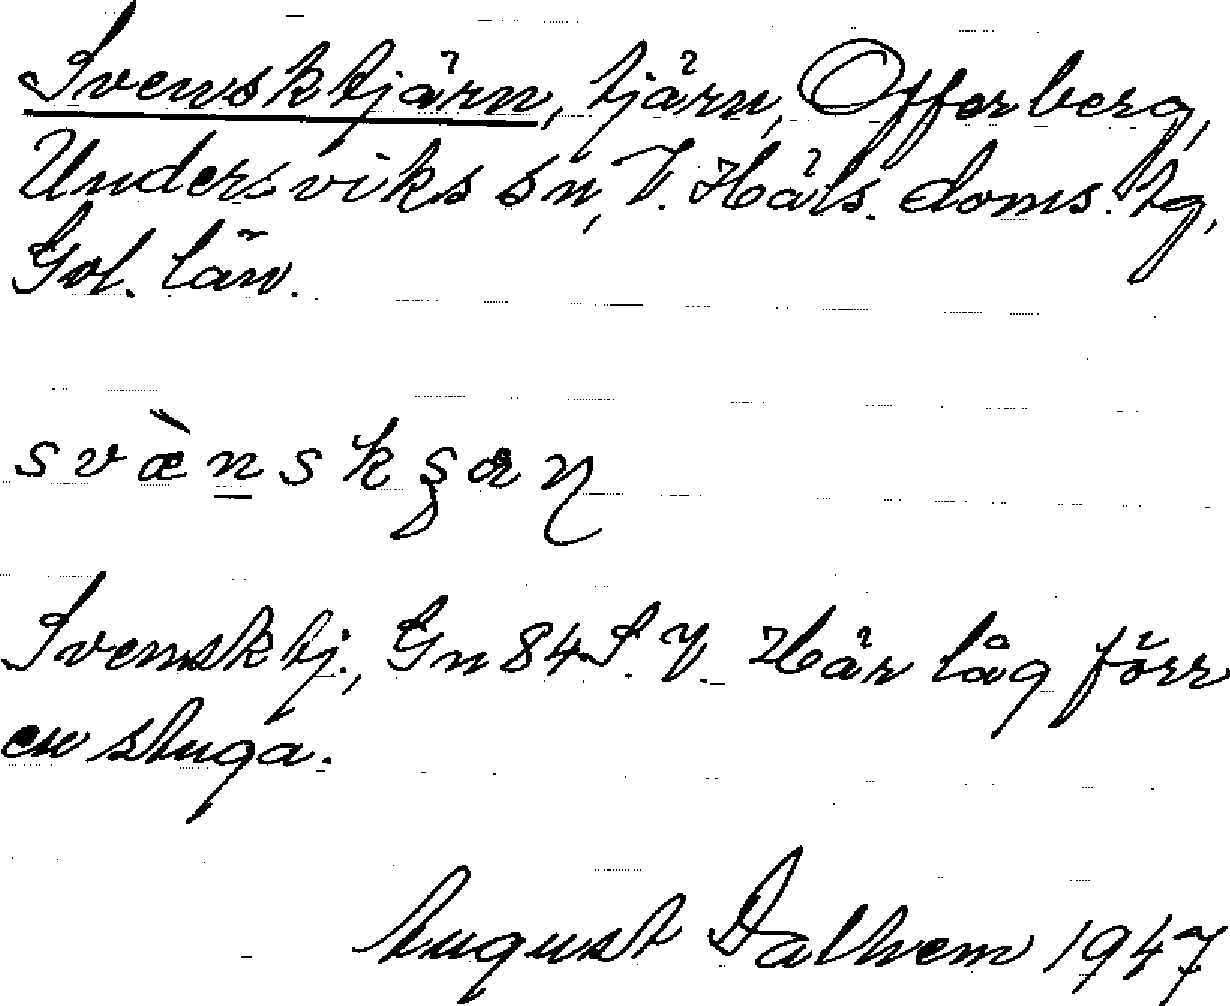 Svensktjärn, tjärn, Offerberg,
Undersviks sn, V. Häls. doms. tg,
Gvl. län.
svæ̀n̲skʂaɳ
Svensktj., Gn 84 S.V. Här låg förr
en stuga.
August Dalhem 1947